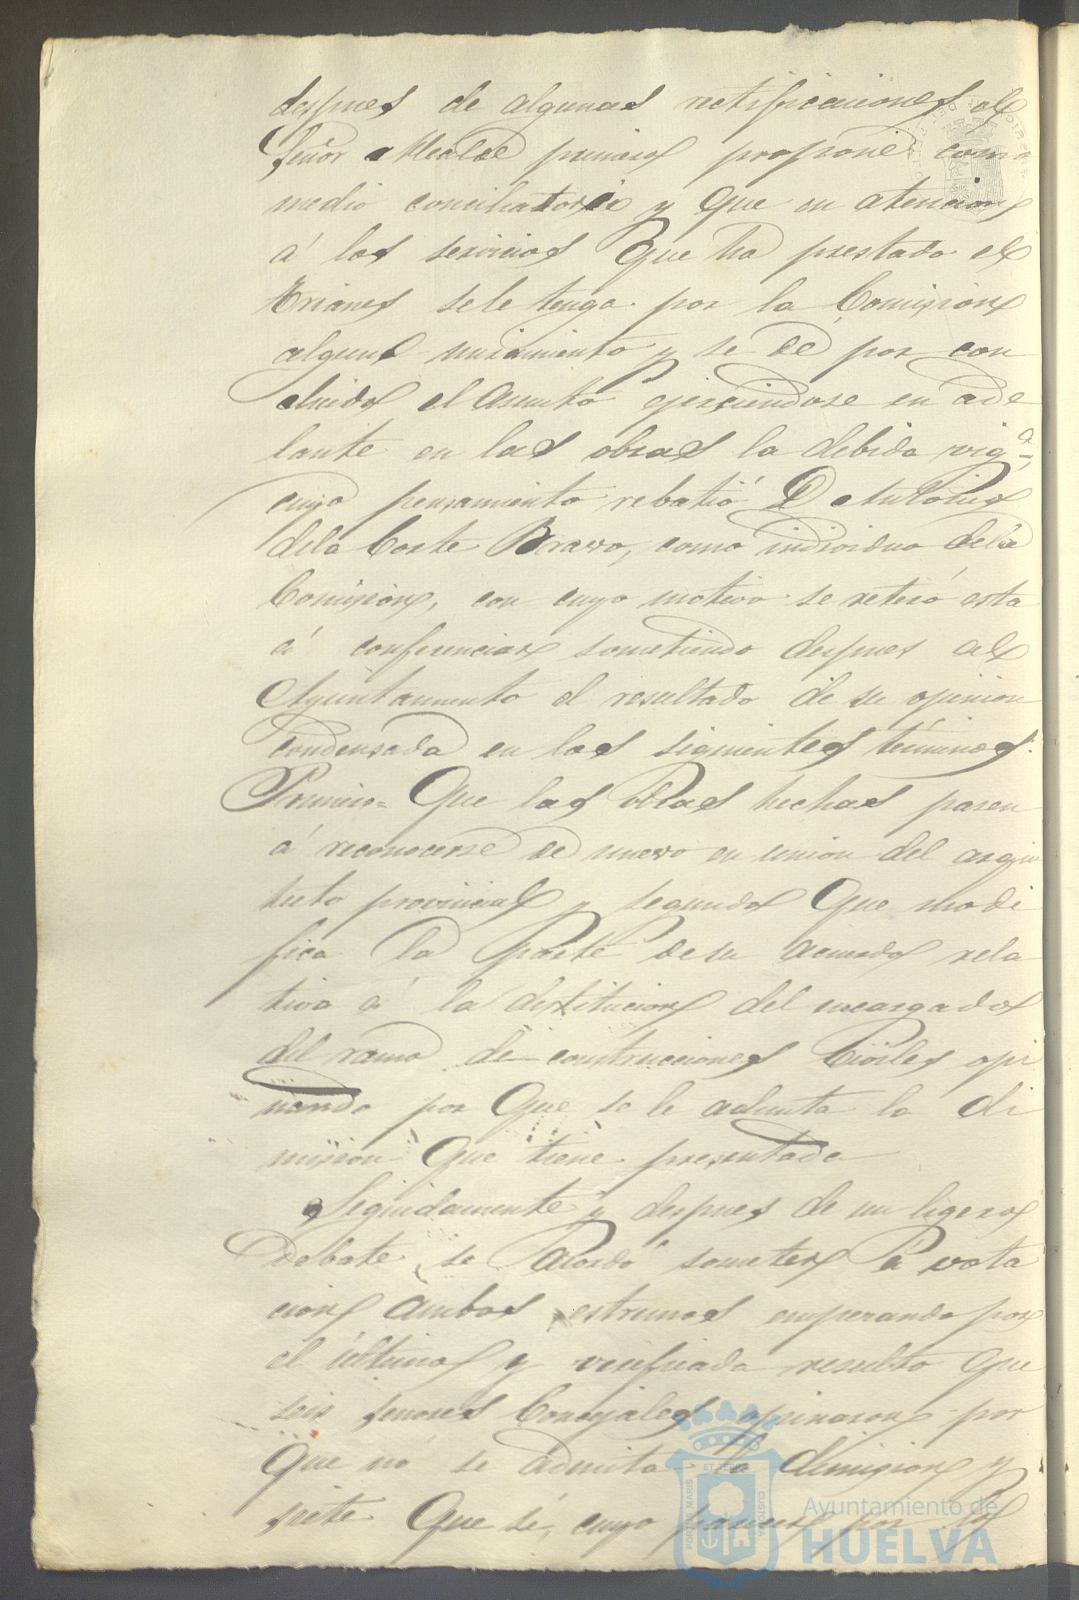 despues de algunas rectificaciones el
Señor Alcalde primero propone como
medio conciliatorio y que en atencion
á los servicios que ha prestado el
se le tenga por la Comision
algun miramiento y se dé por con
cluido el asunto ejerciendose en ade
lante en las obras la debida vig.ª
cuyo pensamiento rebatió D Antonio
dela Corte Bravo, como individuo dela
Comision, con cuyo motivo se retiró esta
á conferenciar sometiendo despues al
Ayuntamiento el resultado de su opinion
condensada en los siguientes términos.
Primero= Que las obras hechas pasen
á reconocerse de nuevo en union del arqui
tecto provincial y segundo Que modi
fica la parte de su acuerdo rela
tiva á la destitucion del encargado
del ramo de construcciones Civiles opi
nando por que se le admita la di
mision que tiene presentada
Seguidamente y despues de un ligero
debate se acordó someter á vota
cion ambos estremos empezando por
el último y verificada resultó que
seis señores Concejales opinaron por
que nó se admita la dimision y
siete que sí, cuyo por
Ayuntamiento de
HUELVA
PORTUS MARIS
ET TERRE
CUSTODIA